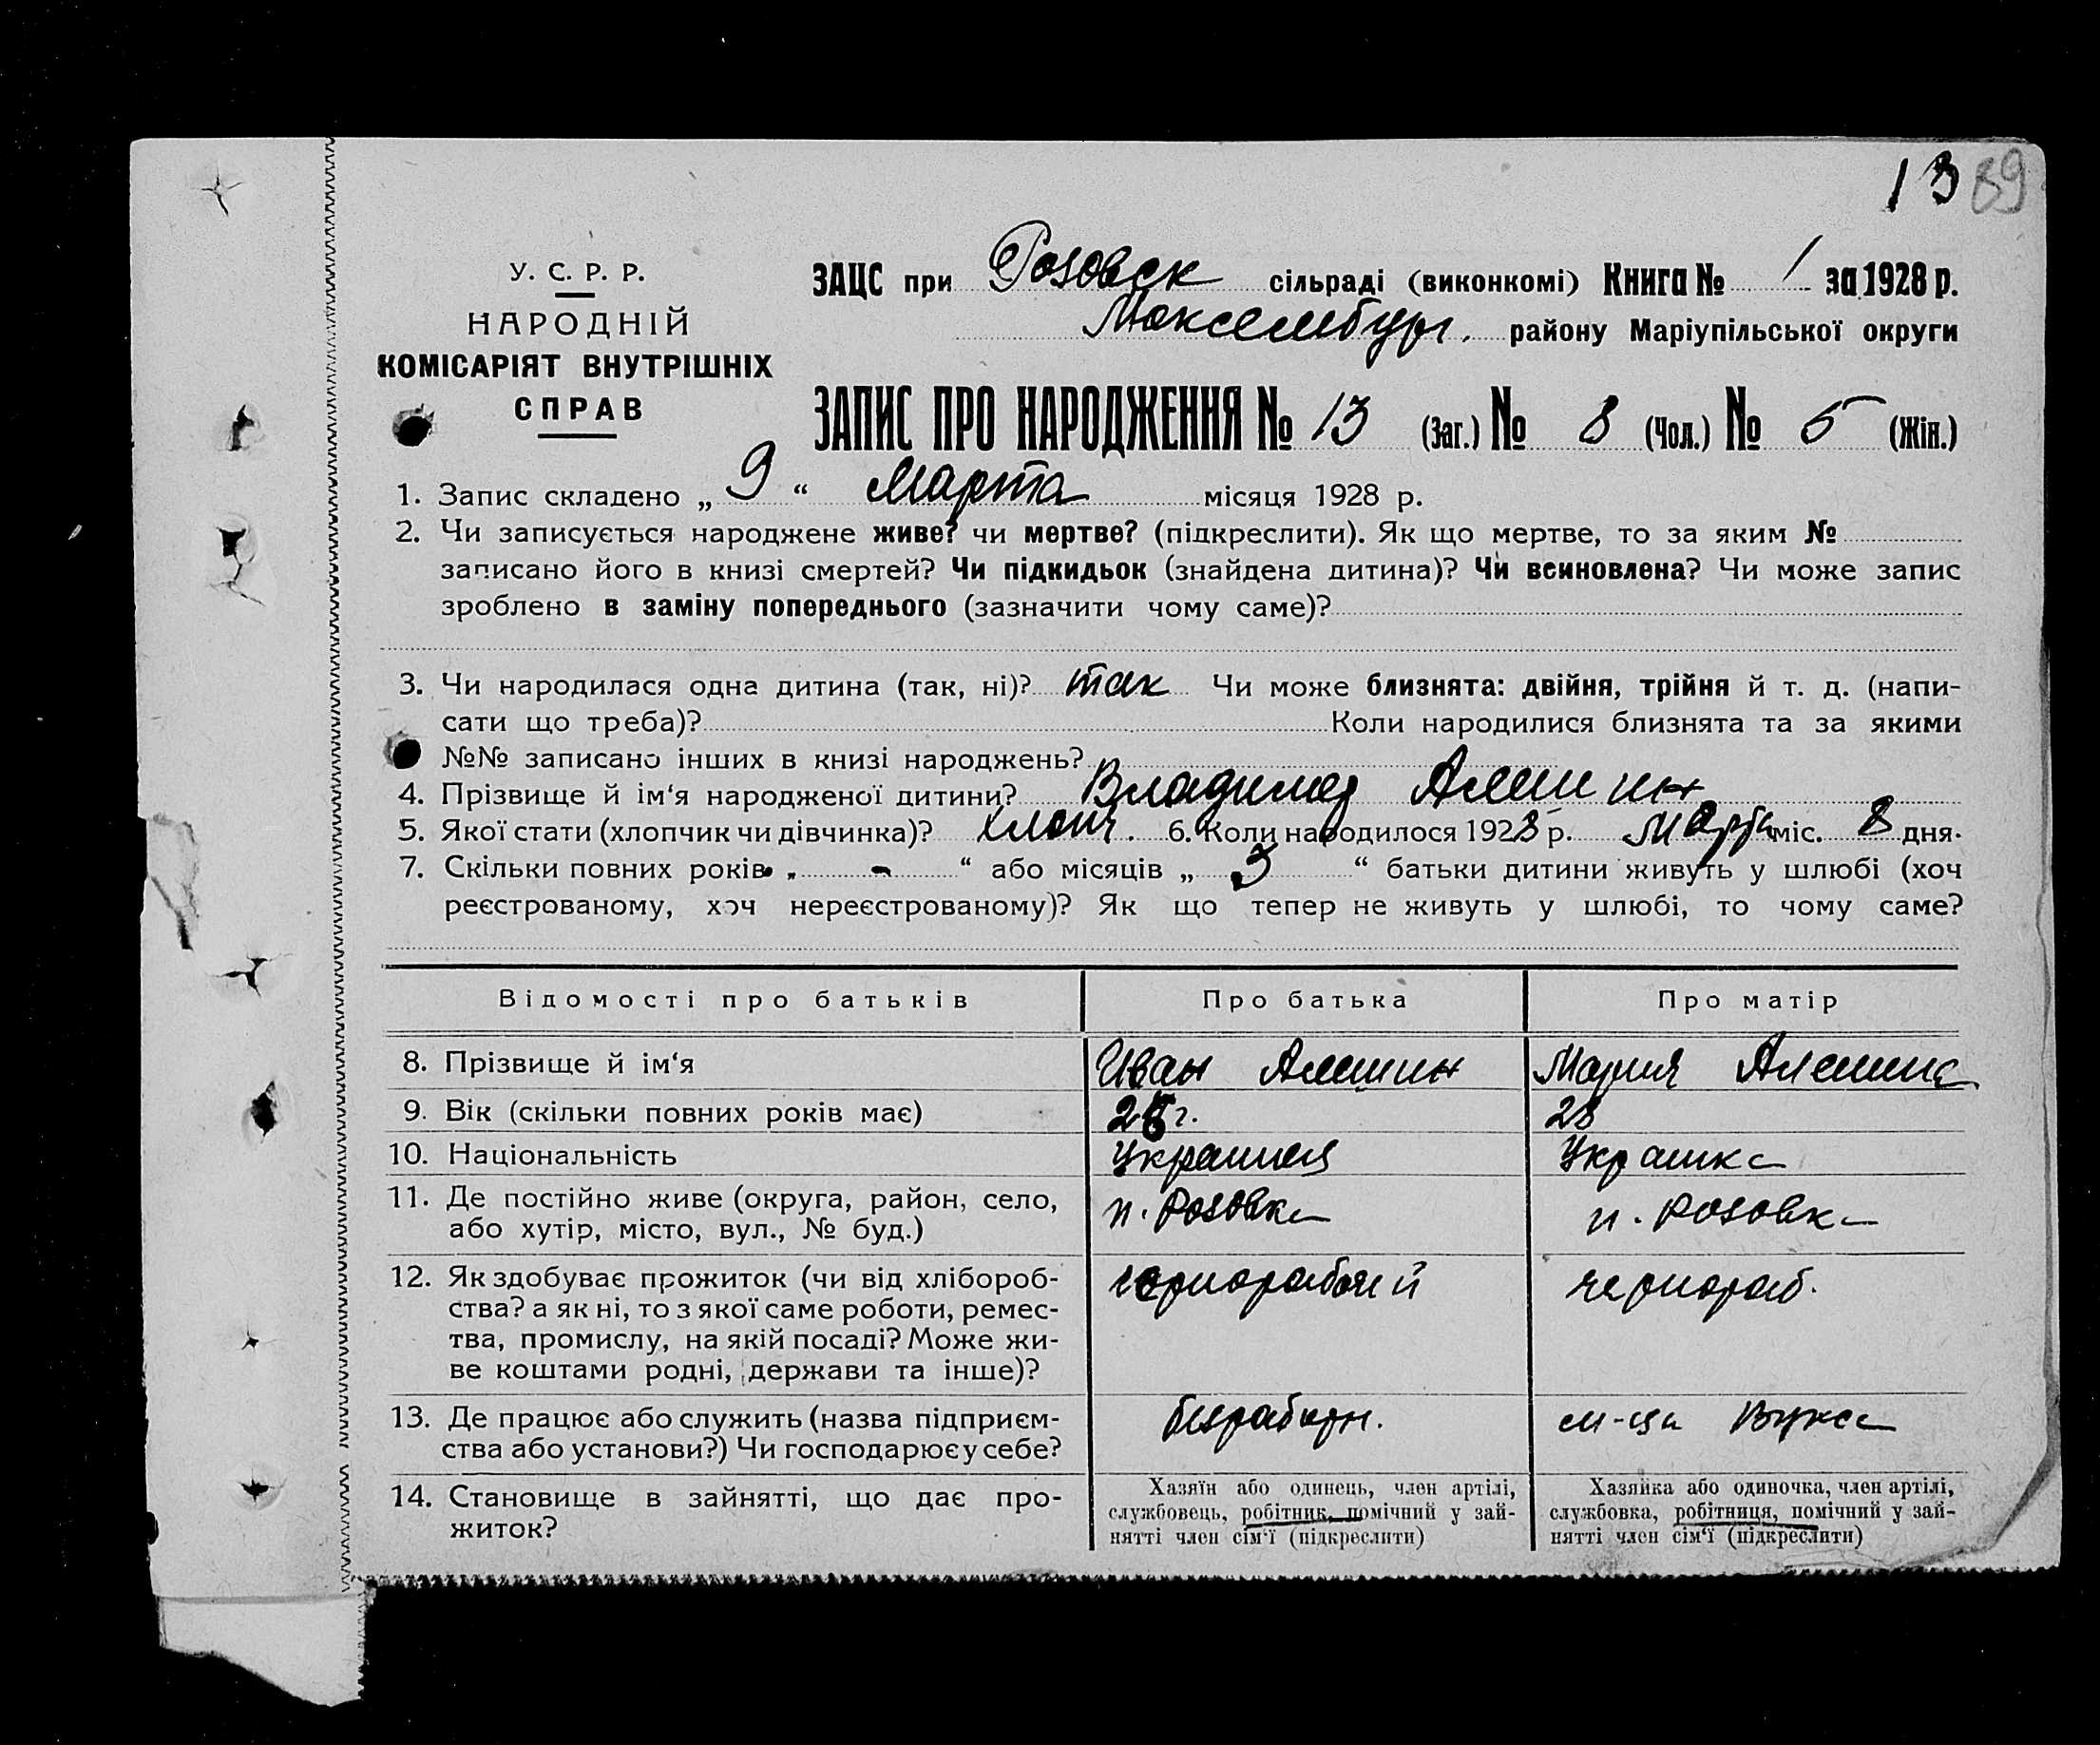 13 39
У. С. Р. Р.
НАРОДНІЙ
КОМІСАРІЯТ ВНУТРІШНІХ
СПРАВ
ЗАЦС при Розовск сільраді (виконкомі) Книга № 1 за 1928 р.
району Маріупільської округи
ЗАПИС ПРО НАРОДЖЕННЯ № 13 (Заг.) № 8 (Чол.) № 5 (Жін.)
1. Запис складено „ 9 “ Марта місяця 1928 р.
2. Чи записується народжене живе? чи мертве? (підкреслити). Як що мертве, то за яким №
записано його в книзі смертей? Чи підкидьок (знайдена дитина)? Чи всиновлена? Чи може запис
зроблено в заміну попереднього (зазначити чому саме)?
3. Чи народилася одна дитина (так, ні)? так Чи може близнята: двійня, трійня й т. д. (напи-
сати що треба)? Коли народилися близнята та за якими
№№ записано інших в книзі народжень?
4. Прізвище й ім‘я народженої дитини? Владимер Алешин
5. Якої стати (хлопчик чи дівчинка)? хлопч. 6. Коли народилося 1928 р. Марта міс. 8 дня.
7. Скільки повних років „ - “ або місяців „ 3 “ батьки дитини живуть у шлюбі (хоч
реєстрованому, хоч нереєстрованому)? Як що тепер не живуть у шлюбі, то чому саме?
Відомості про батьків Про батька Про матір
8. Прізвище й ім‘я Иван Алешин Мария Алешина
9. Вік (скільки повних років має) г. 28
10. Національність Украинец Украинка
11. Де постійно живе (округа, район, село,
або хутір, місто, вул., № буд.) п. Розовка п. Розовка
12. Як здобуває прожиток (чи від хлібороб-
ства? а як ні, то з якої саме роботи, ремес-
тва, промислу, на якій посаді? Може жи-
ве коштами родні, держави та інше)? чернорабочий чернораб.
13. Де працює або служить (назва підприєм-
ства або установи?) Чи господарює у себе? безработн.
14. Становище в зайнятті, що дає про-
житок?
Хазяїн або одинець, член артілі,
службовець, робітник, помічний у зай-
нятті член сім‘ї (підкреслити)
Хазяйка або одиночка, член артілі,
службовка, робітниця, помічний у зай-
нятті член сім‘ї (підкреслити)